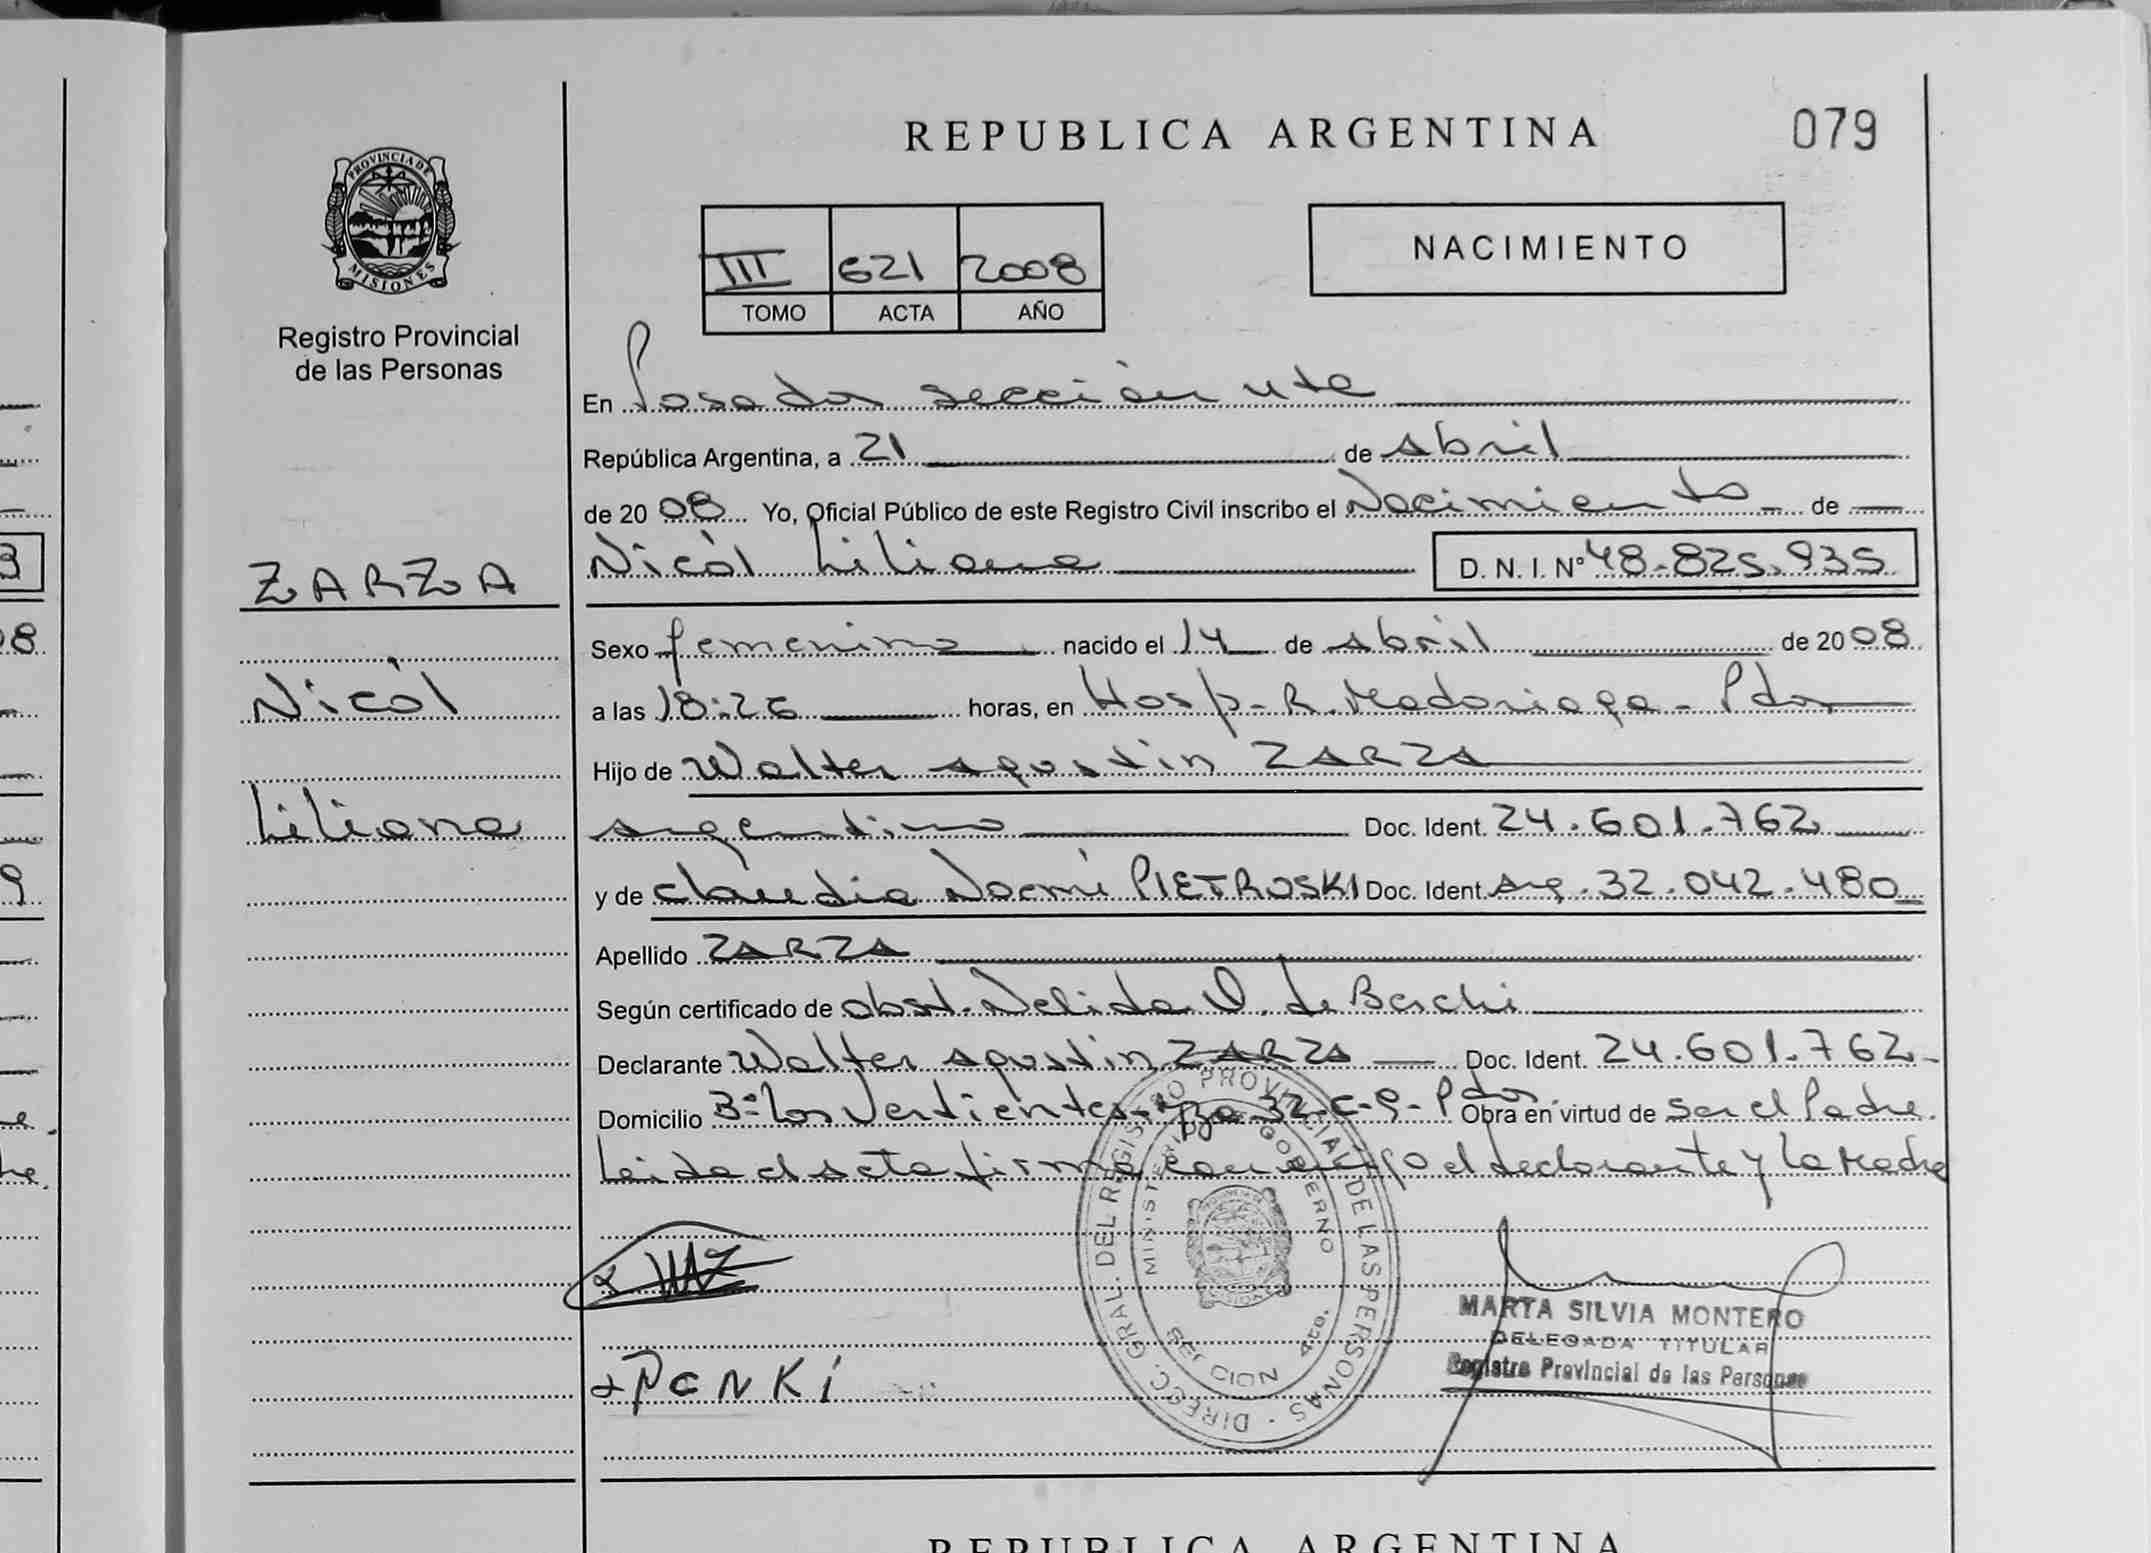 REPUBLICA ARGENTINA
079
PROVINCIA DE MISIONES
Registro Provincial
de las Personas
III 621 2008
TOMO ACTA AÑO
NACIMIENTO
En Posadas sección
República Argentina, a 21 de abril
de 2008 Yo, Oficial Público de este Registro Civil inscribo el Nacimiento de
ZARZA
Nicól Liliana D. N. I. Nº 48.825.935
Sexo femenino nacido el 14 de abril de 2008
Nicól
a las 18:26 horas, en Hosp. R. Madariaga - Pdas
Hijo de Walter agustin ZARZA
Liliana
argentino Doc. Ident. 24.601.762
y de claudia Noemi PIETROSKI Doc. Ident. arg. 32.042.480
Apellido ZARZA
Según certificado de obst. Nelida O. de
Declarante Walter agustin ZARZA Doc. Ident. 24.601.762
Domicilio Bº Los Vertientes - 32-C-9- Pdas. Obra en virtud de ser el Padre.
Leida el acta firma conmigo el declarante y La Madre
DIREC. GRAL. DEL REGISTRO PROVINCIAL DE LAS PERSONAS
MINISTERIO DE GOBIERNO
MISIONES
MARTA SILVIA MONTERO
DELEGADA TITULAR
Registro Provincial de las Personas
REPUBLICA ARGENTINA
3
08
9